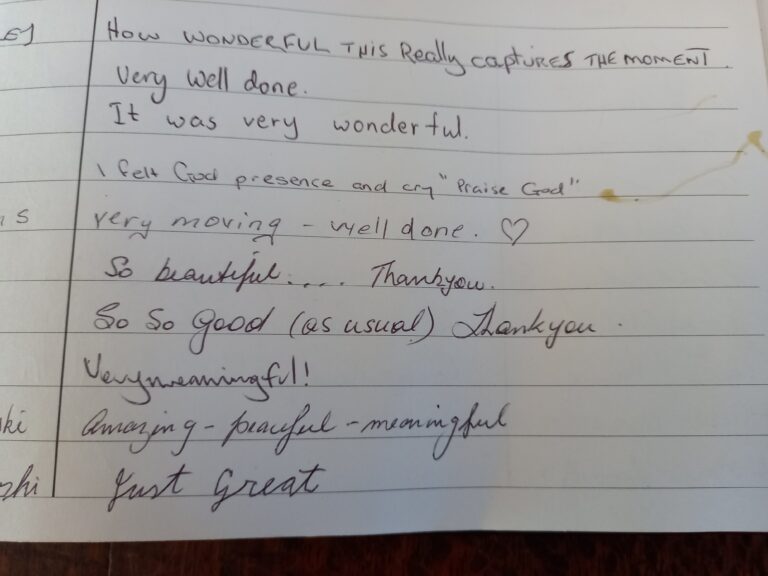 HOW WONDERFUL THIS Really captures THE MOMENT.
Very well done.
It was very wonderful.
I felt God presence and cry "Praise God"
s very moving - well done. ♡
So beautiful.... Thankyou.
So So Good (as usual) Thankyou.
Very meaningful!
ki Amazing - peaceful - meaningful
shi Just Great